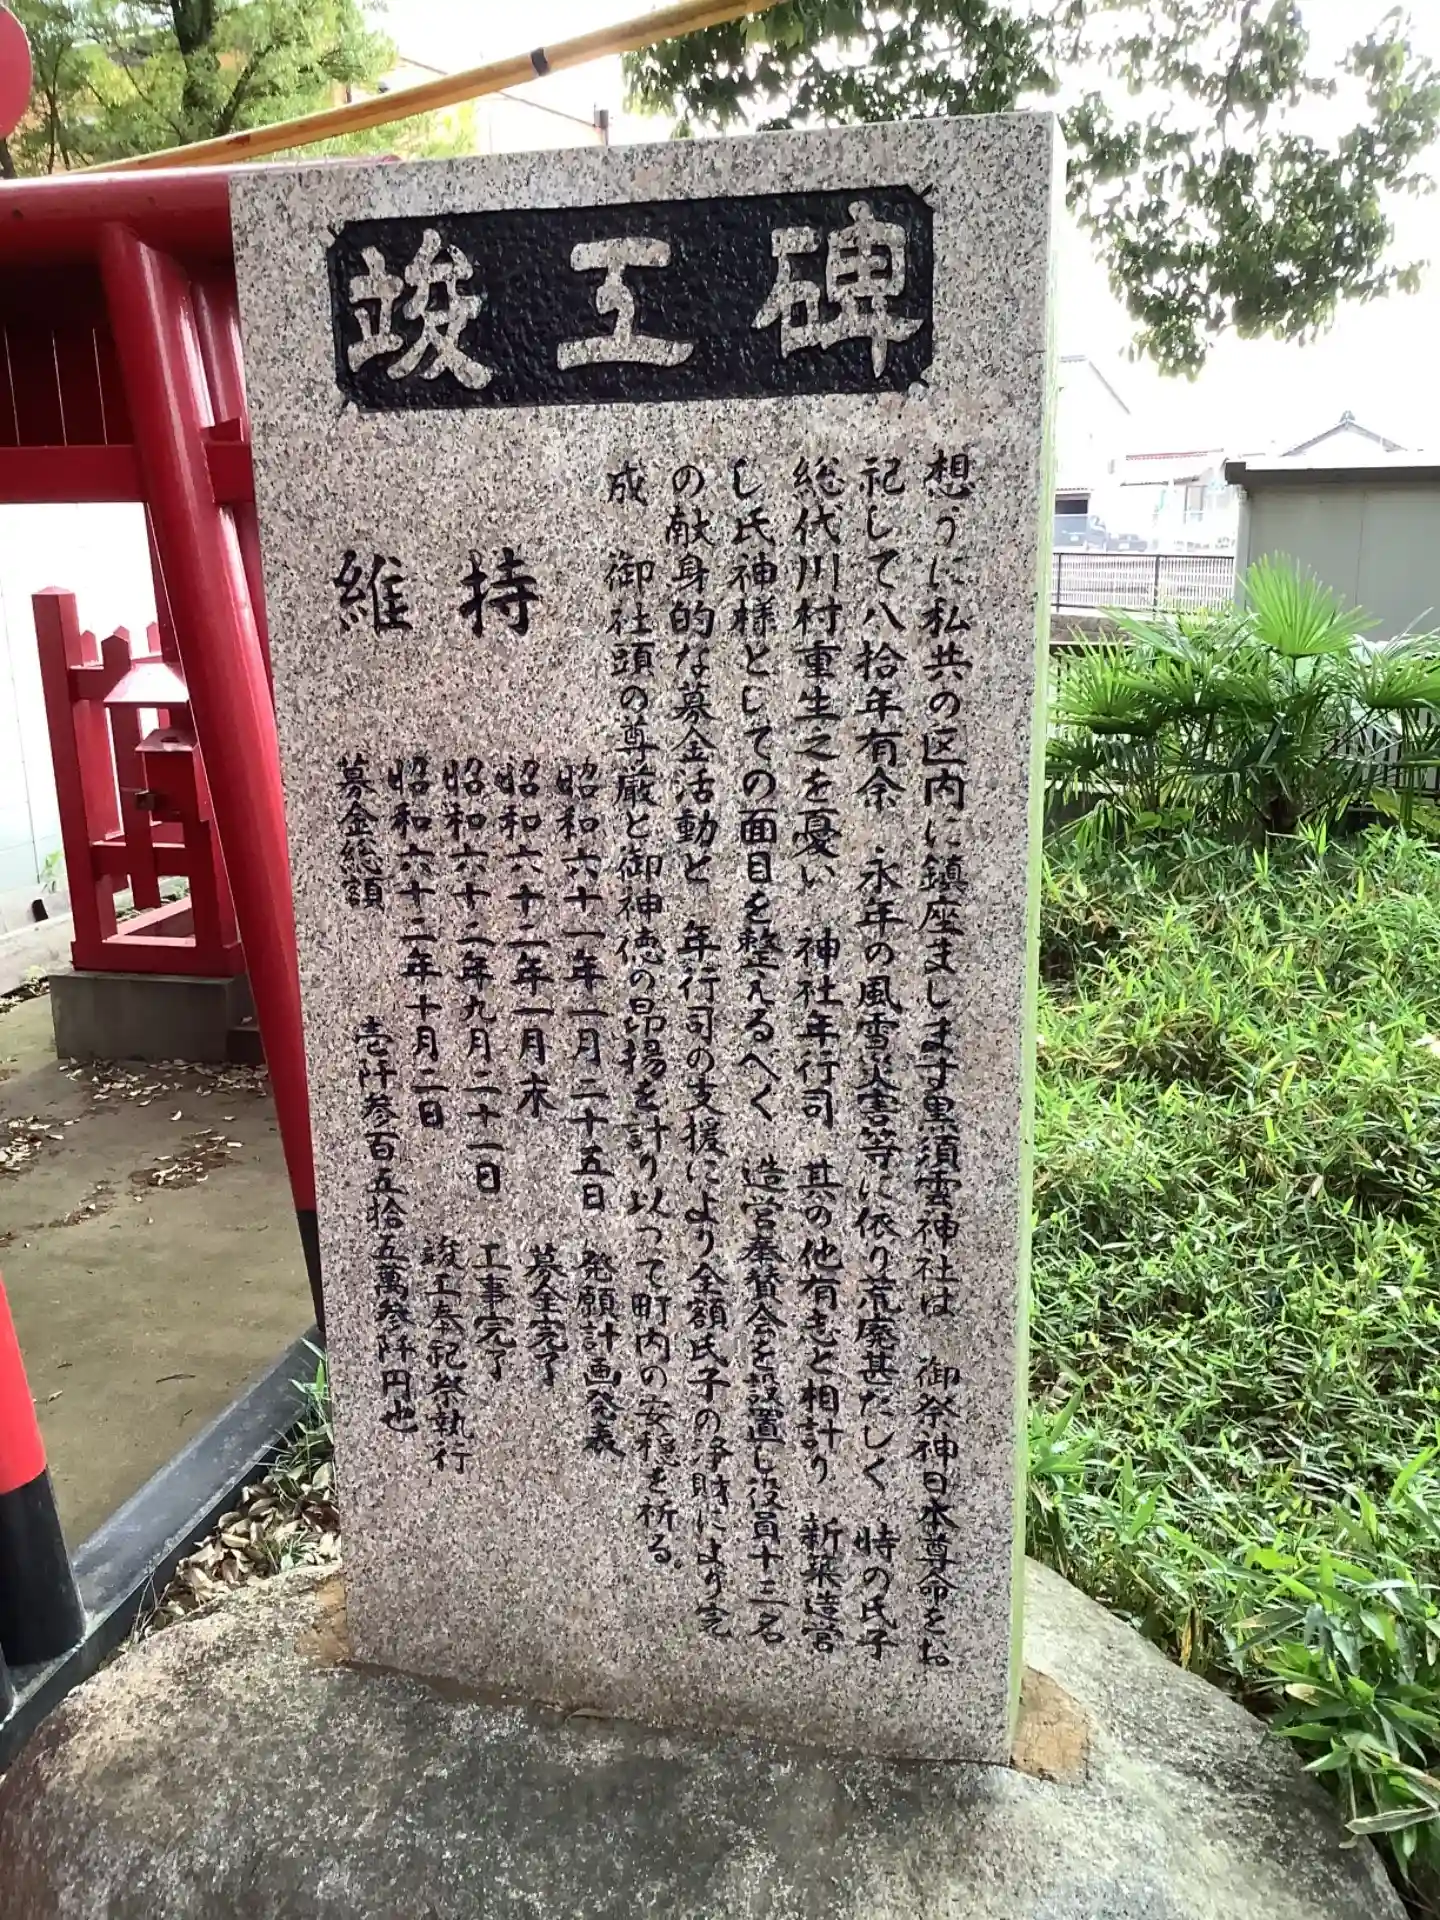 竣工碑
想うに私共の区内に鎮座まします黒須雲神社は 御祭神日本尊命をお
記して八拾年有余 永年の風雪災害等に依り荒廃甚だしく 時の氏子
総代川村重生之を憂い 神社年行司 其の他有志と相計り 新築造営
し氏神様としての面目を整えるべく 造営奉賛会を設置し役員十三名
の献身的な募金活動と 年行司の支援により全額氏子の浄財により完
成 御社頭の尊厳と御神徳の昂揚を計り以つて町内の安穏を祈る。
昭和六十一年一月二十五日 発願計画発表
維持
昭和六十二年一月末 募金完了
昭和六十二年九月二十一日 工事完了
昭和六十二年十月二日 竣工奉祝祭執行
募金総額 壱阡参百五拾五萬参阡円也